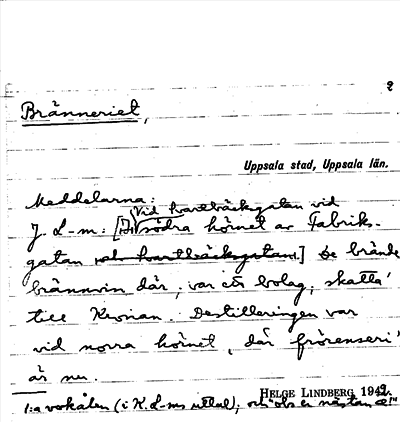 2
Bränneriet,
Uppsala stad, Uppsala län.
Meddelarna:
Vid Svartbäcksgatan vid
J. L-m: [södra hörnet av Fabriks-
gatan och Svartbäcksgatan.] De brände
brännvin där; var ett bolag; skatta'
till Kronan. Destilleringen var
vid norra hörnet, där frörenseri'
är nu.
HELGE LINDBERG 1942.
1:a vokalen (i K. L-ms uttal); och obs er nästan æ!"